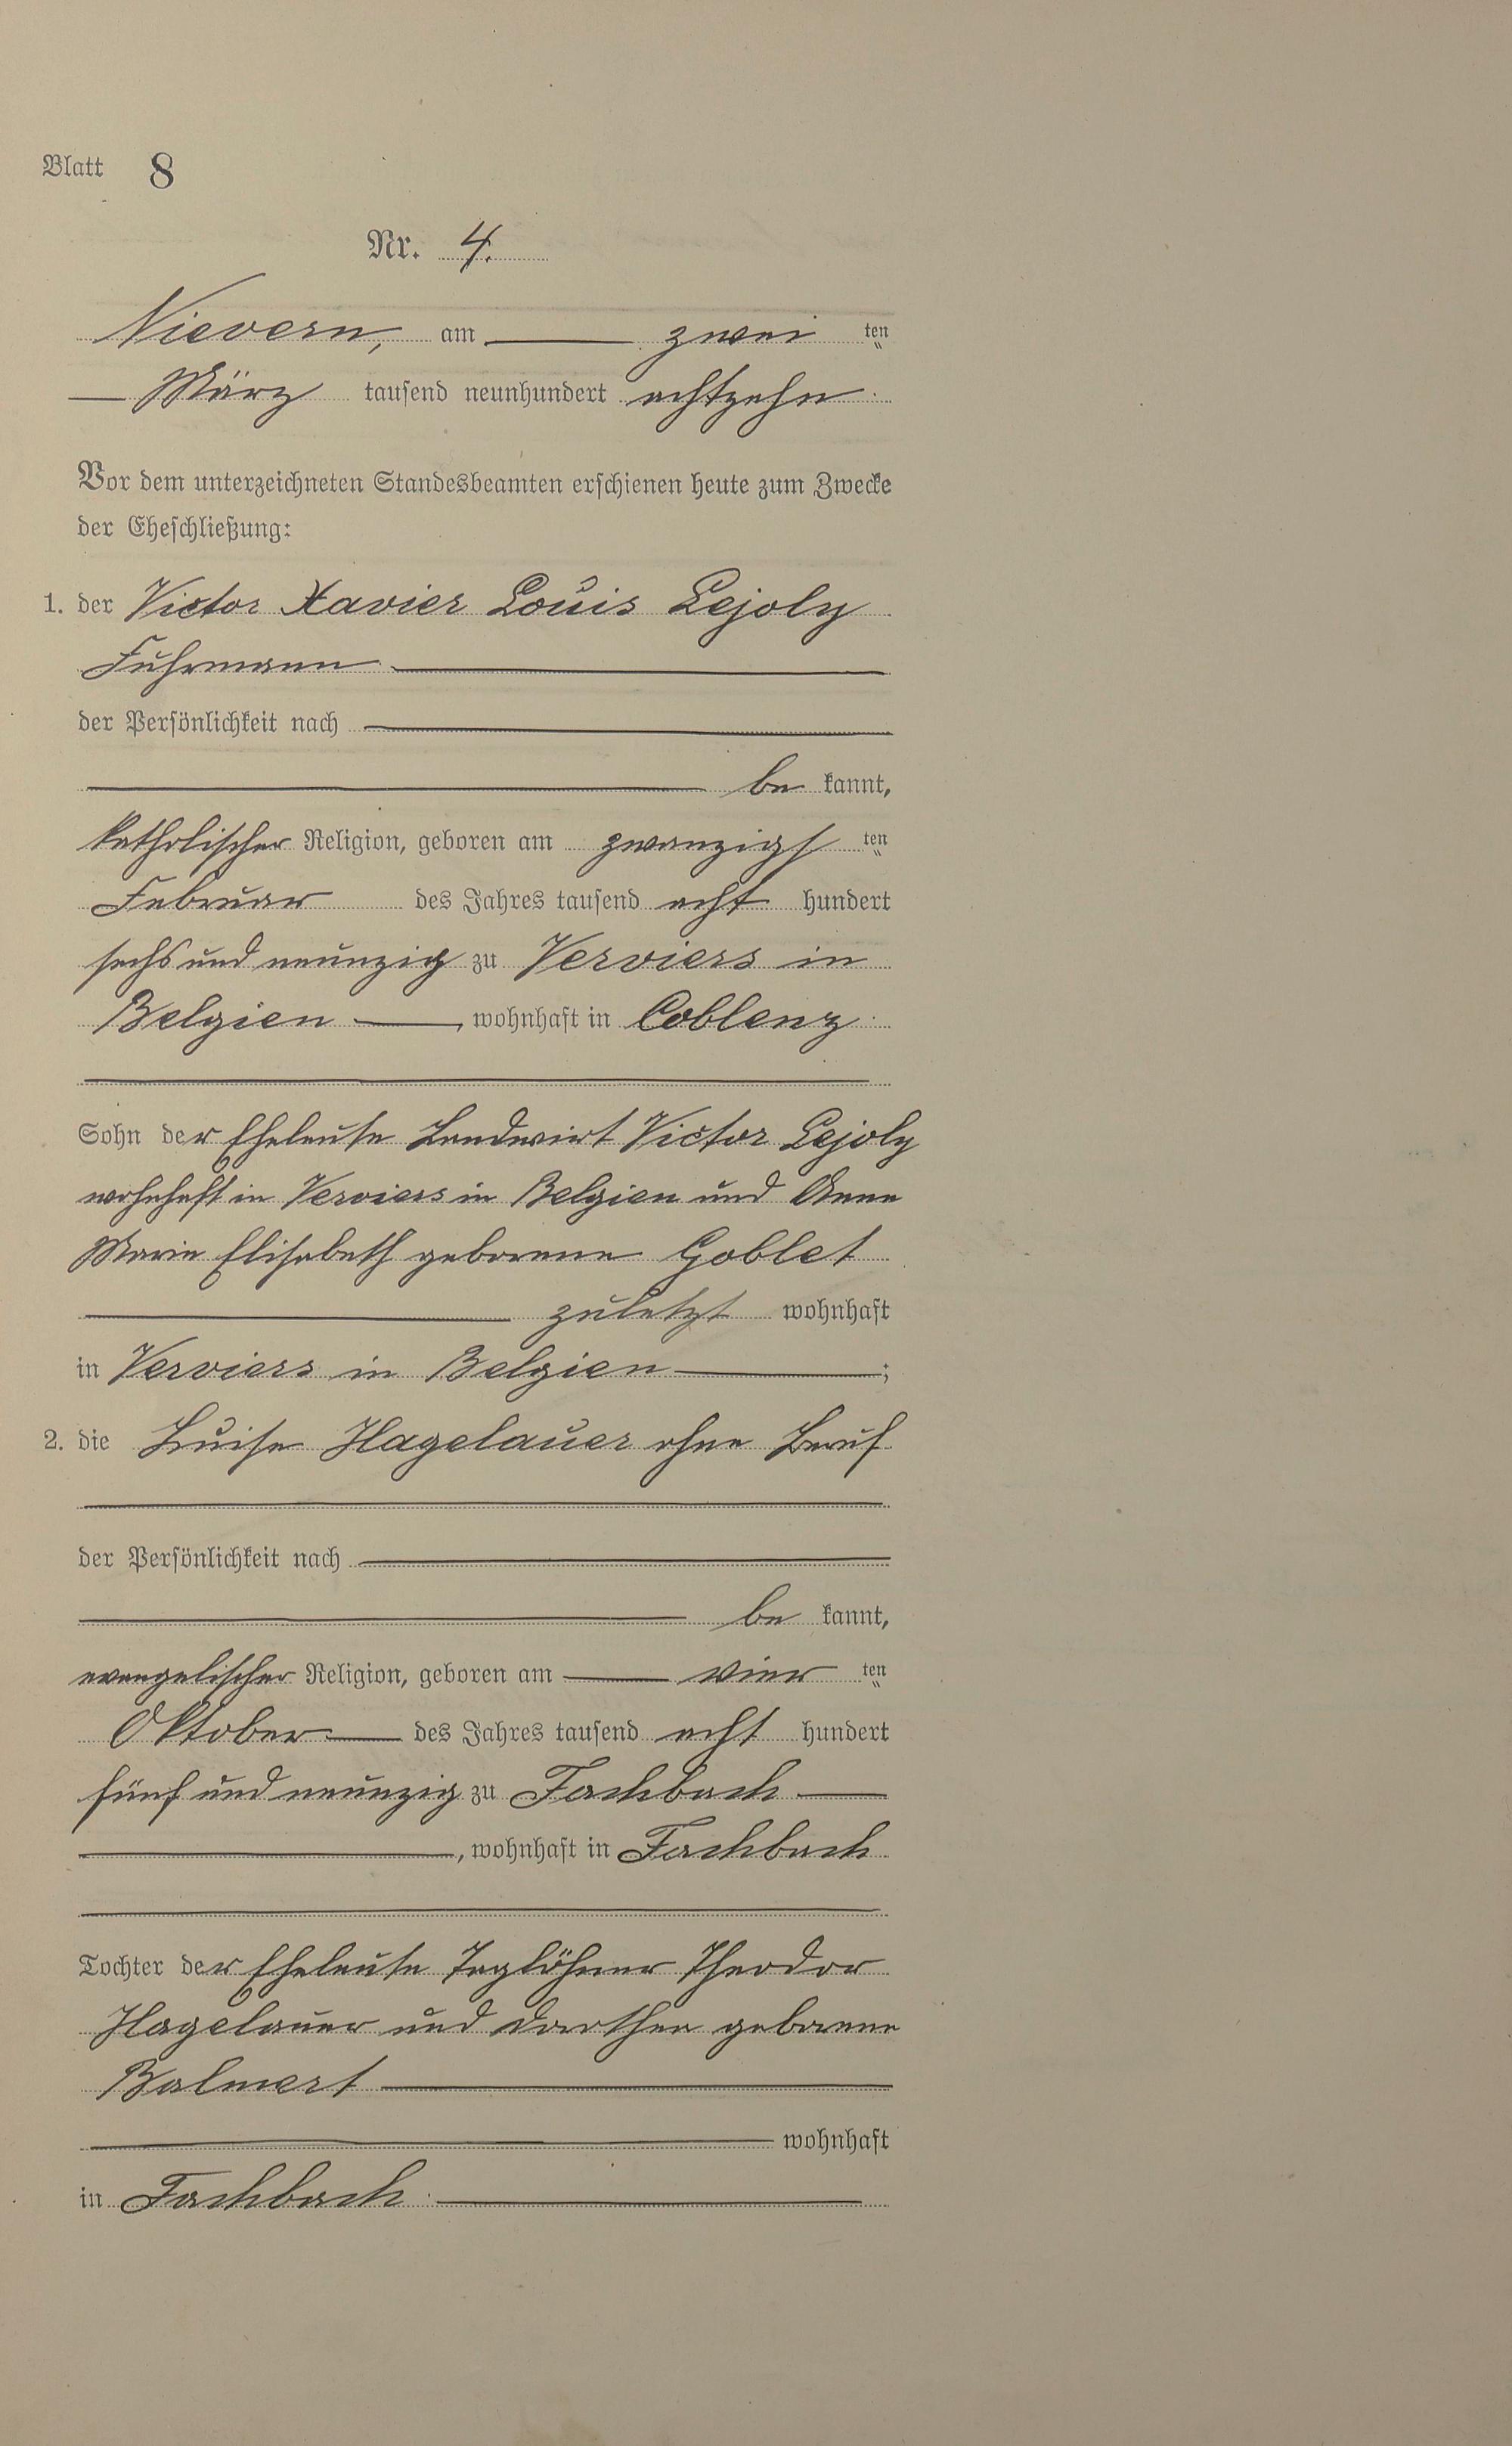 Blatt 8
Nr. 4.
Nievern, am zwei ten
März tausend neunhundert achtzehn
Vor dem unterzeichneten Standesbeamten erschienen heute zum Zwecke
der Eheschließung:
1. der Victor Xavier Louis Lejoly
Fuhrmann
der Persönlichkeit nach
be kannt,
katholischer Religion, geboren am zwanzigs ten
Februar des Jahres tausend acht hundert
sechs und neunzig zu Verviers in
Belgien, wohnhaft in Coblenz
Sohn der Eheleute Landwirt Victor Lejoly
wohnhaft in Verviers in Belgien und Anna
Maria Elisabeth geborene Goblet
zuletzt wohnhaft
in Verviers in Belgien;
2. die Luise Hagelauer ohne Beruf
der Persönlichkeit nach
be kannt,
evangelischer Religion, geboren am vier ten
Oktober des Jahres tausend acht hundert
fünf und neunzig zu Fachbach
, wohnhaft in Fachbach
Tochter der Eheleute Taglöhner Theodor
Hagelauer und Dorthea geborene
Balmert
wohnhaft
in Fachbach